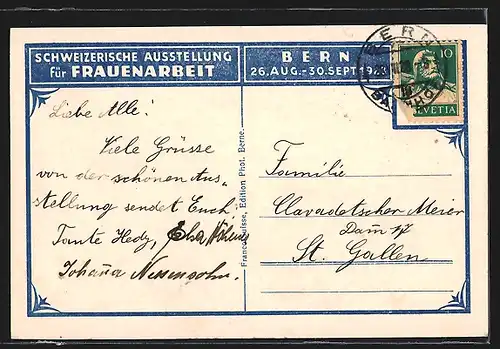 SCHWEIZERISCHE AUSSTELLUNG
für FRAUENARBEIT
BERN
26. AUG.-30. SEPT 1923
BERN
10
HELVETIA
Liebe Alle!
Viele Grüsse
von der schönen Aus=
stellung sendet Euch
Tante Hedy, Elsa
Johanna
Franco-Suisse, Edition Phot. Berne.
Familie
Clavadetscher Meier
St. Gallen